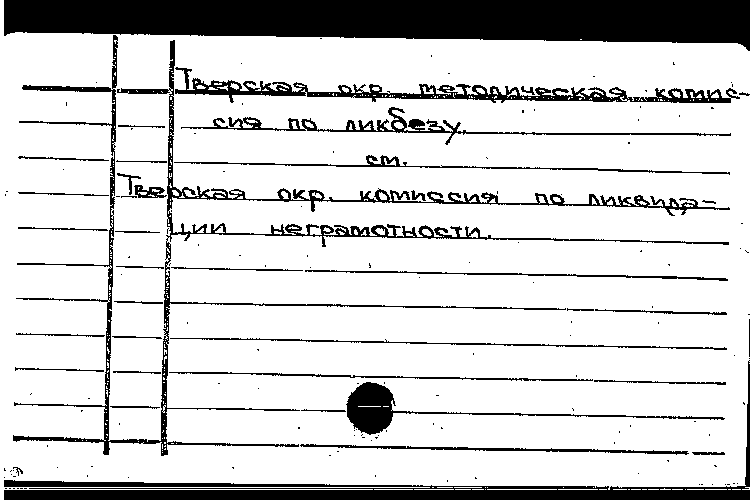 Тверская окр. методическая комис-
сия по ликбезу.
см.
Тверская окр. комиссия по ликвида-
ции неграмотности.